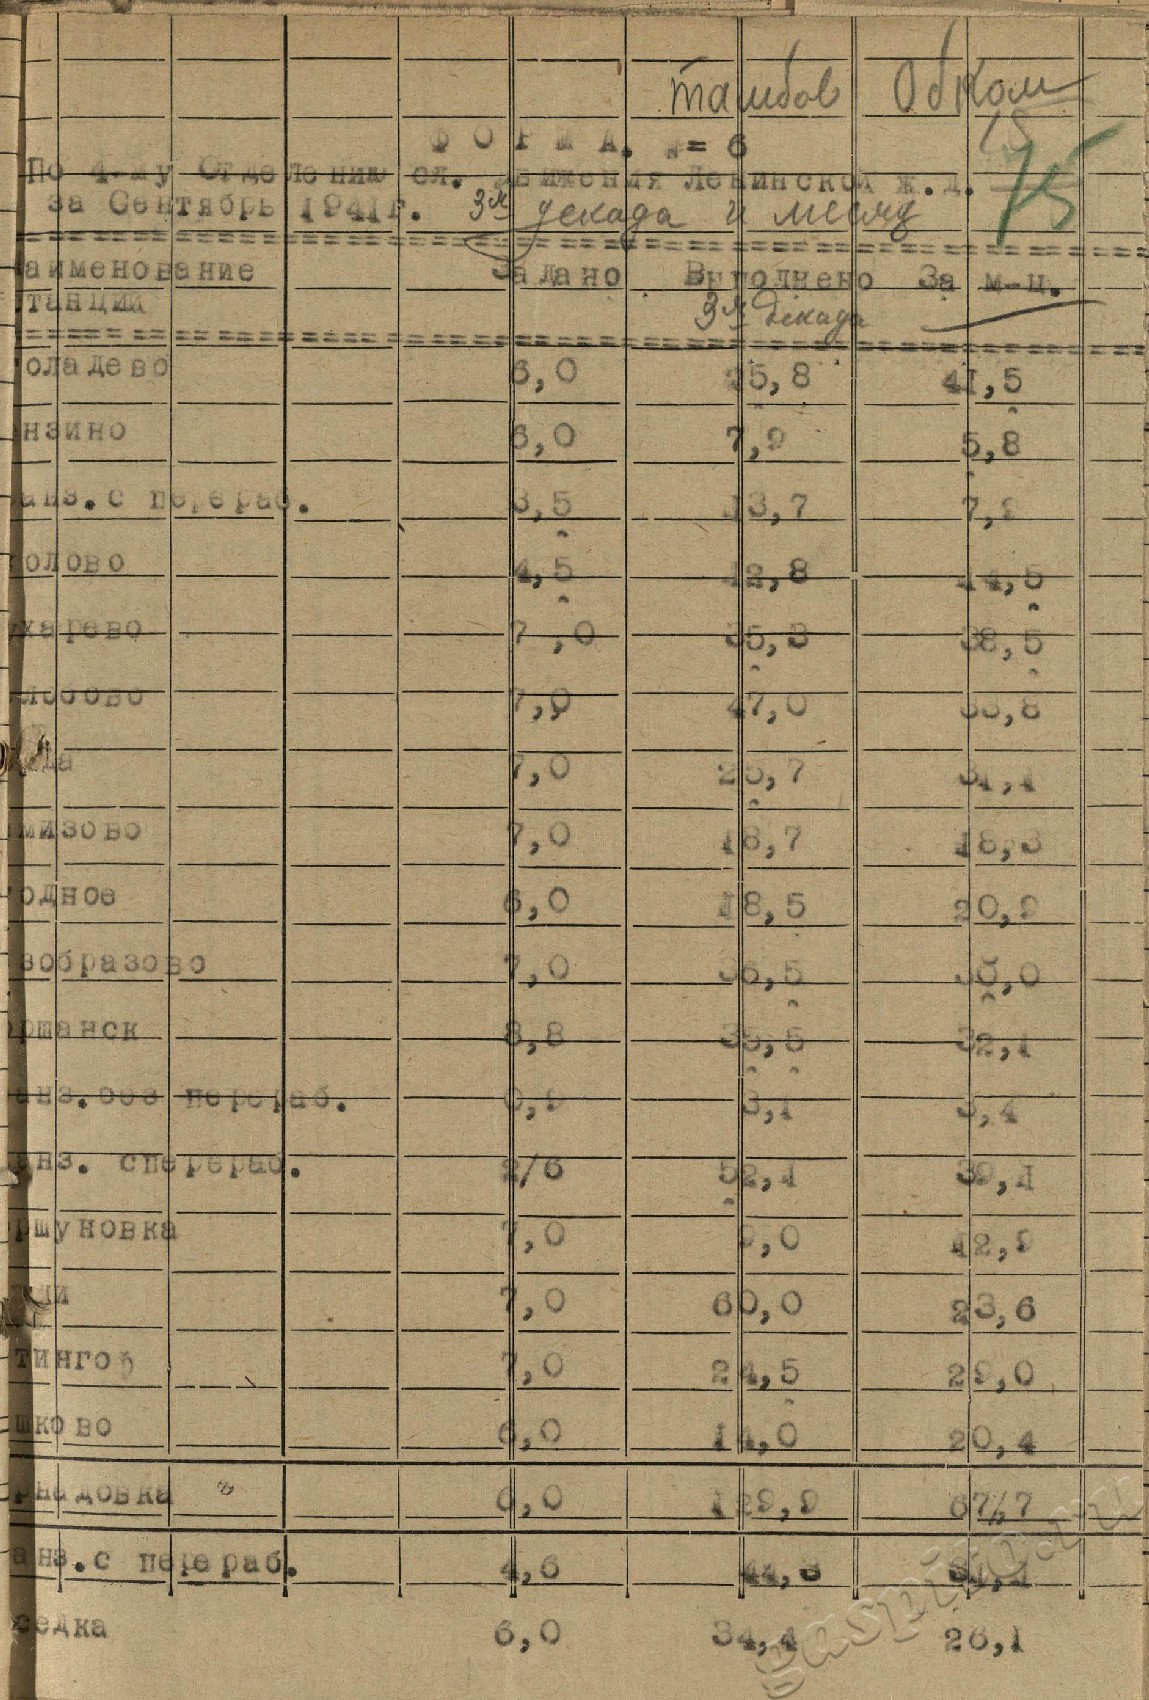 Тамбов Обком
15
ФОРМА. №= 6
75
По 4-му Отделению сл. движения Ленинской ж.д.
за Сентябрь 1941г. 3я декада и месяц
аименование Задано Выполнено За м-ц.
танции 3я декада
оладево 6,0 25,8 41,5
нзино 6,0 7,9 5,8
анз.с перераб. 3,5 13,7 7,9
олово 4,5 12,8 14,5
харево 7,0 35,3 38,5
лобово 7,0 47,0 33,8
да 7,0 25,7 31,1
мизово 7,0 18,7 18,3
одное 6,0 18,5 20,9
зобразово 7,0 36,5 30,0
ршанск 8,8 35,5 32,1
анз.без перераб. 0,9 3,1 3,4
анз. сперераб. 2/6 52,1 39,1
ршуновка 7,0 9,0 12,9
ли 7,0 60,0 23,6
тингоф 7,0 24,5 29,0
шково 6,0 14,0 20,4
рнадовка 6,0 129,9 67,7
анз.с перераб. 4,6 44,3 31,1
седка 6,0 34,4 26,1
gaspito.ru